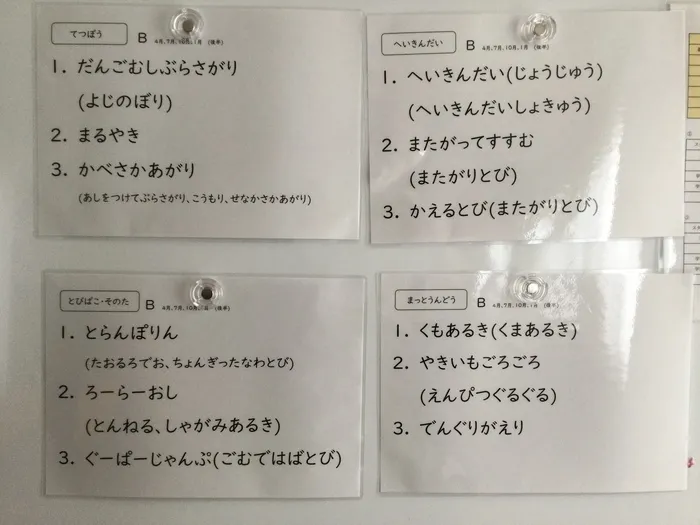 てつぼう B 4月、7月、10月、1月 (後半)
1. だんごむしぶらさがり
(よじのぼり)
2. まるやき
3. かべさかあがり
(あしをつけてぶらさがり、こうもり、せなかさかあがり)
へいきんだい B 4月、7月、10月、1月 (後半)
1. へいきんだい(じょうじゅう)
(へいきんだいしょきゅう)
2. またがってすすむ
(またがりとび)
3. かえるとび(またがりとび)
とびばこ・そのた B 4月、7月、10月、1月 (後半)
1. とらんぽりん
(たおるろでお、ちょんぎったなわとび)
2. ろーらーおし
(とんねる、しゃがみあるき)
3. ぐーぱーじゃんぷ(ごむではばとび)
まっとうんどう B 4月、7月、10月、1月 (後半)
1. くもあるき(くまあるき)
2. やきいもごろごろ
(えんぴつぐるぐる)
3. でんぐりがえり